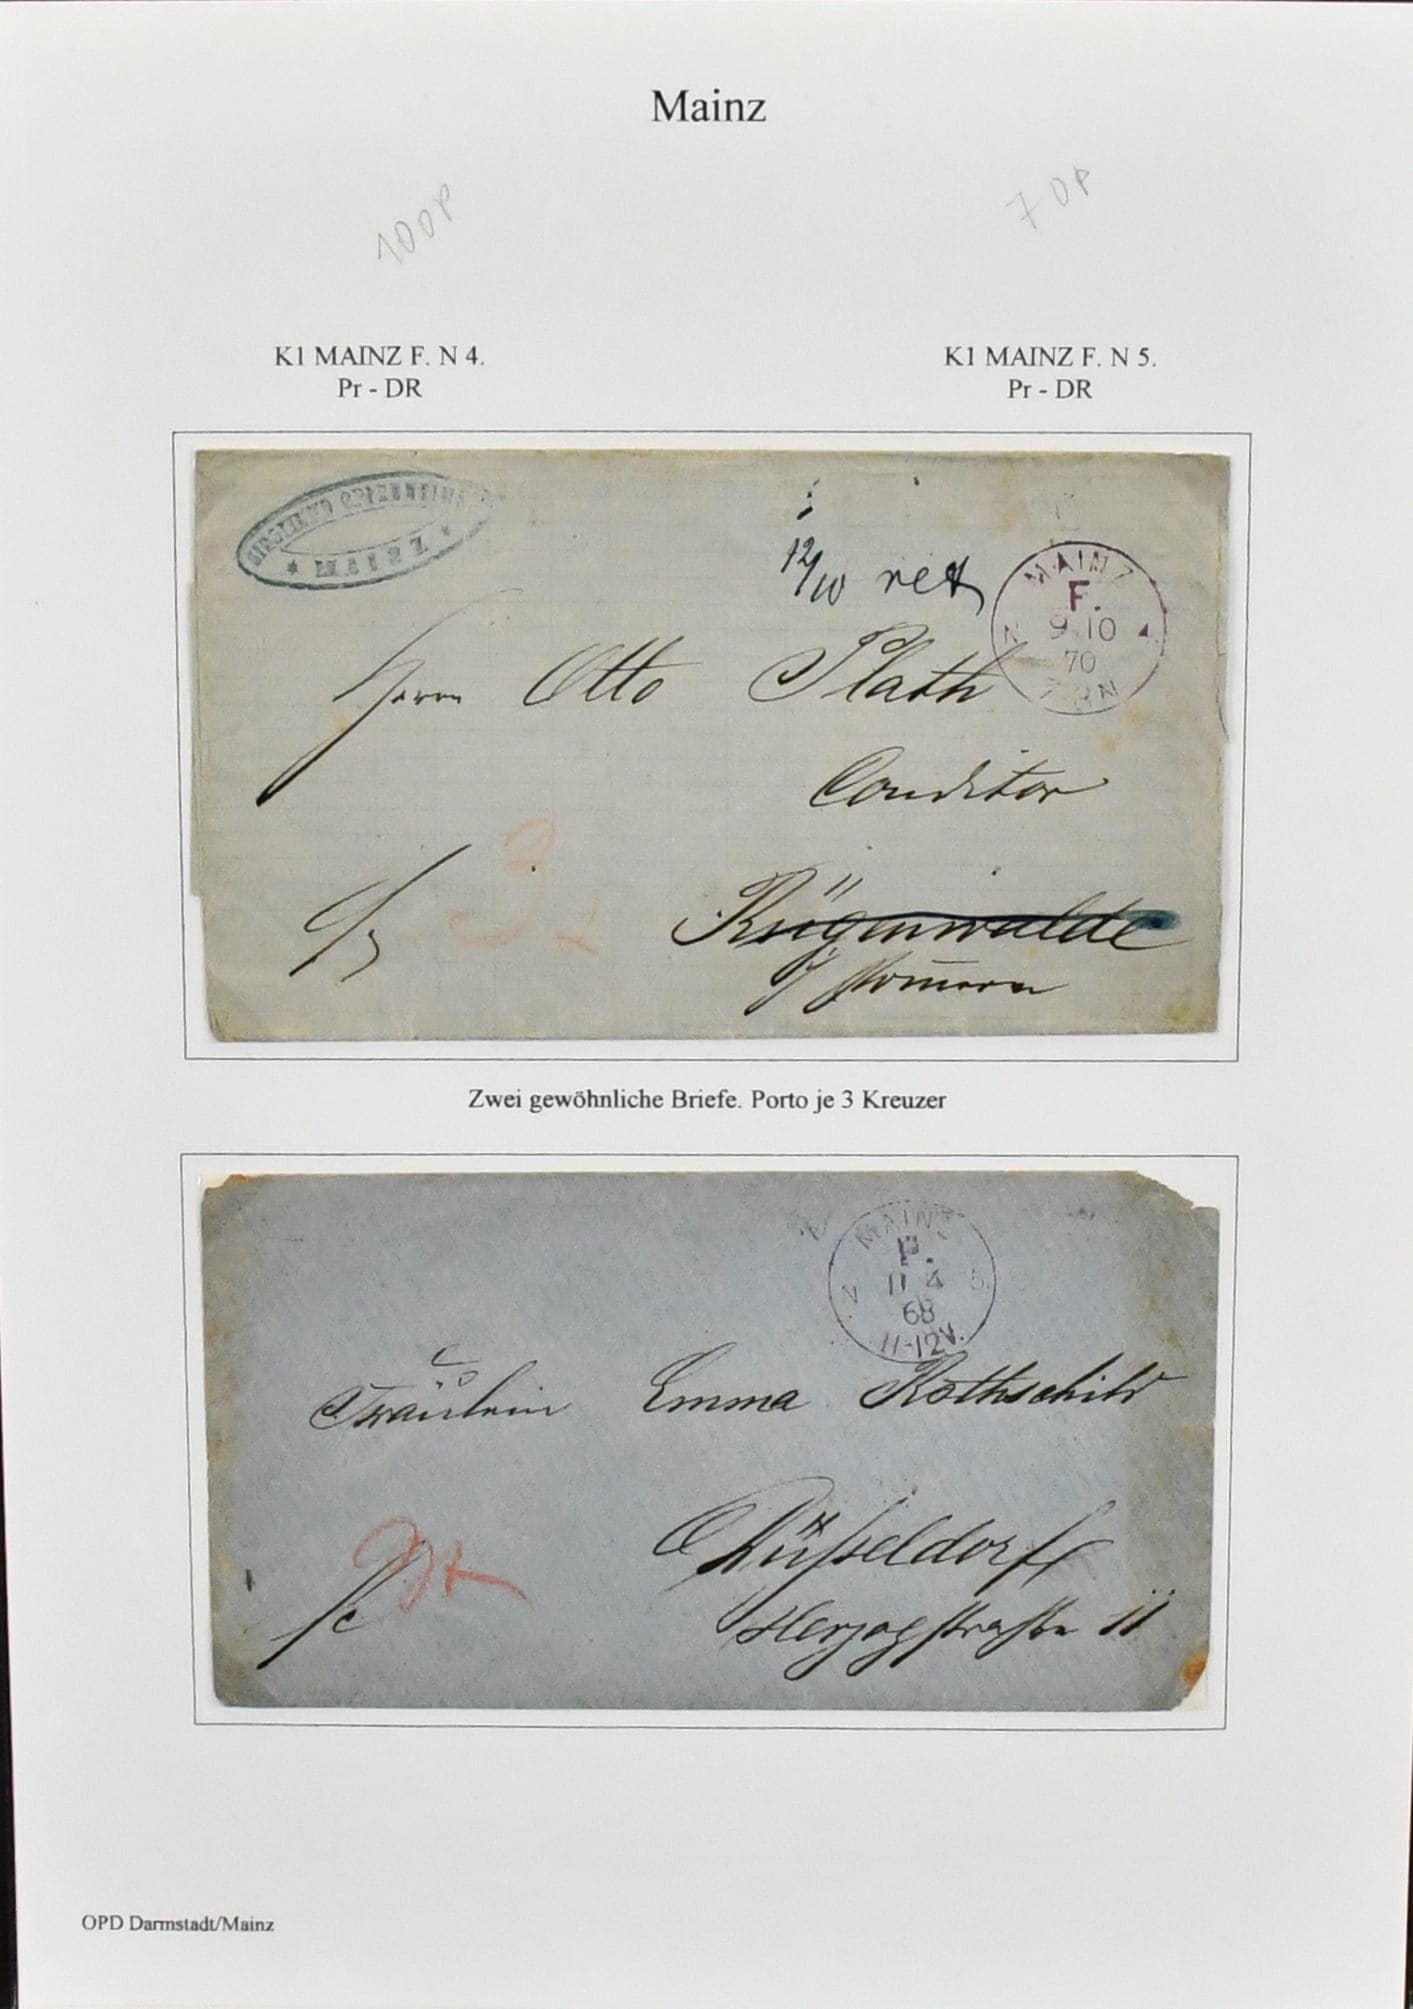 Mainz
100P
70P
K1 MAINZ F. N 4.
Pr - DR
K1 MAINZ F. N 5.
Pr - DR
MAINZ
12/10 ret
MAINZ
F.
N 9 10 4
70
Herrn Otto Plath
Conditor
3x
Rügenwalde
Zwei gewöhnliche Briefe. Porto je 3 Kreuzer
MAINZ
F.
N 11 4 5
68
11-12V.
Fräulein Emma Rothschild
Düßeldorf
Herzogstraße 11
OPD Darmstadt/Mainz